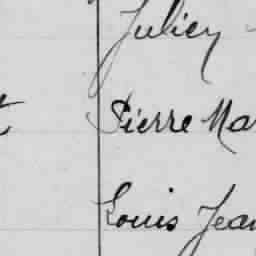 Julien
Pierre Mar
Louis Jean